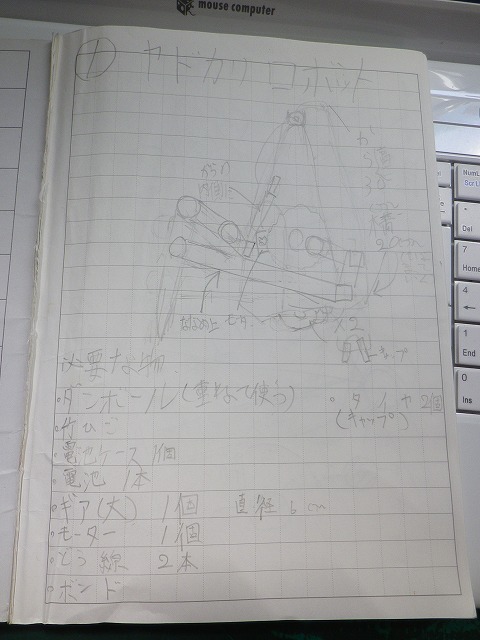 mouse computer
① ヤドカリロボット
からの
内側に
横
20cm
×2
キャップ
必要な物
・ダンボール(重ねて使う)
・タイヤ2個
(キャップ)
・竹ひご
・電池ケース 1個
・電池 1本
・ギア(大) 1個 直径 6cm
・モーター 1個
・どう線 2本
・ボンド
NumL
Scr L
Del
7
Home
4
←
1
End
0
Ins